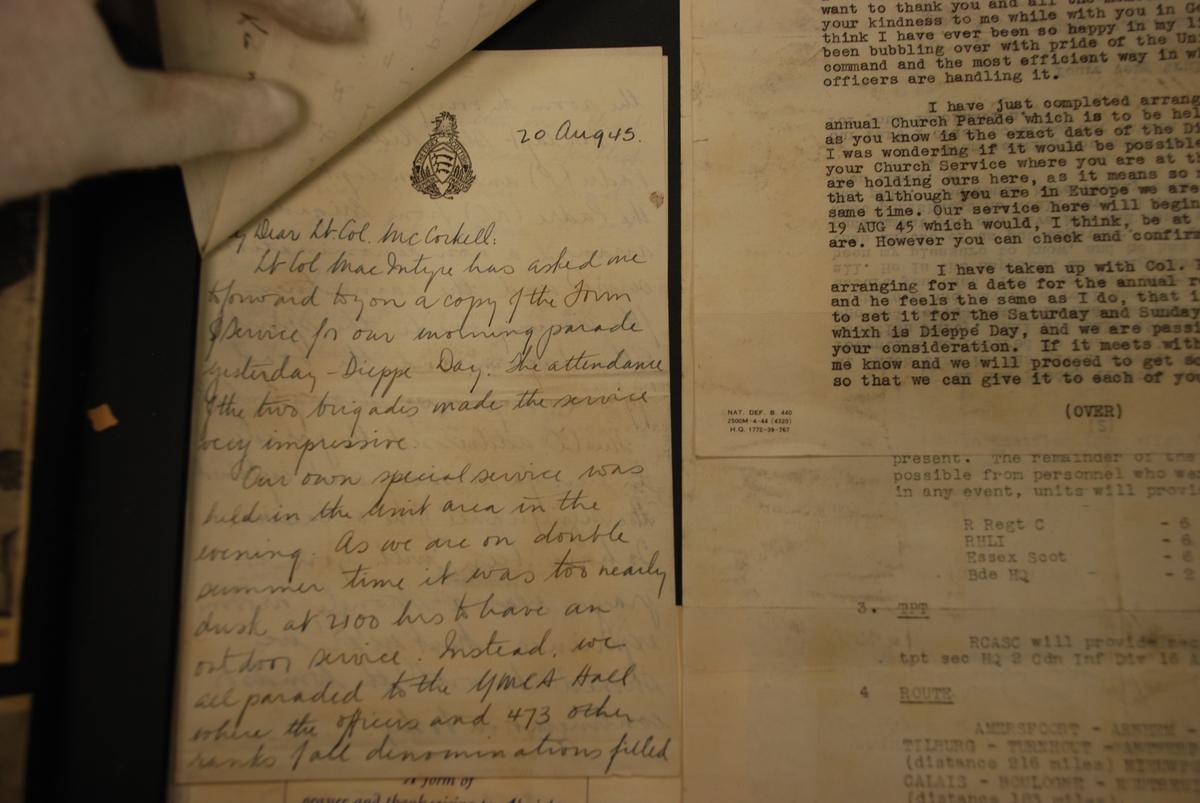 20 Aug 45.
Dear Lt. Col. McCorkell:
Lt Col MacIntyre has asked me
to forward to you a copy of the Form
of Service for our morning parade
yesterday - Dieppe Day. The attendance
of the two brigades made the service
very impressive.
Our own special service was
held in the unit area in the
evening. As we are on double
summer time it was too nearly
dusk at 2100 hrs to have an
outdoor service. Instead, we
all paraded to the YMCA Hall
where the officers and 473 other
ranks of all denominations filled
A form of
want to thank you and all the
your kindness to me while with you in
think I have ever been so happy in my
been bubbling over with pride of the
command and the most efficient way in
officers are handling it.
I have just completed
annual Church Parade which is to be
as you know is the exact date of the
I was wondering if it would be possible
your Church Service where you are at
are holding ours here, as it means so
that although you are in Europe we are
same time. Our service here will begin
19 AUG 45 which would, I think, be at
are. However you can check and
I have taken up with Col.
arranging for a date for the annual
and he feels the same as I do, that
to set it for the Saturday and Sunday
whixh is Dieppe Day, and we are
your consideration. If it meets
me know and we will proceed to get
so that we can give it to each of
(OVER)
NAT. DEF. B. 440
2500M-4-44 (4320)
H.Q. 1772-39-767
present. The remainder of the
possible from personnel who
in any event, units will
R Regt C - 6
RHLI - 6
Essex Scot - 6
Bde HQ - 2
3. TPT
RCASC will provide
tpt sec HQ 2 Cdn Inf Div 16
4 ROUTE
AMERSFOORT - ARNHEM -
TILBURG - TURNHOUT -
(distance 216 miles)
CALAIS - BOULOGNE -